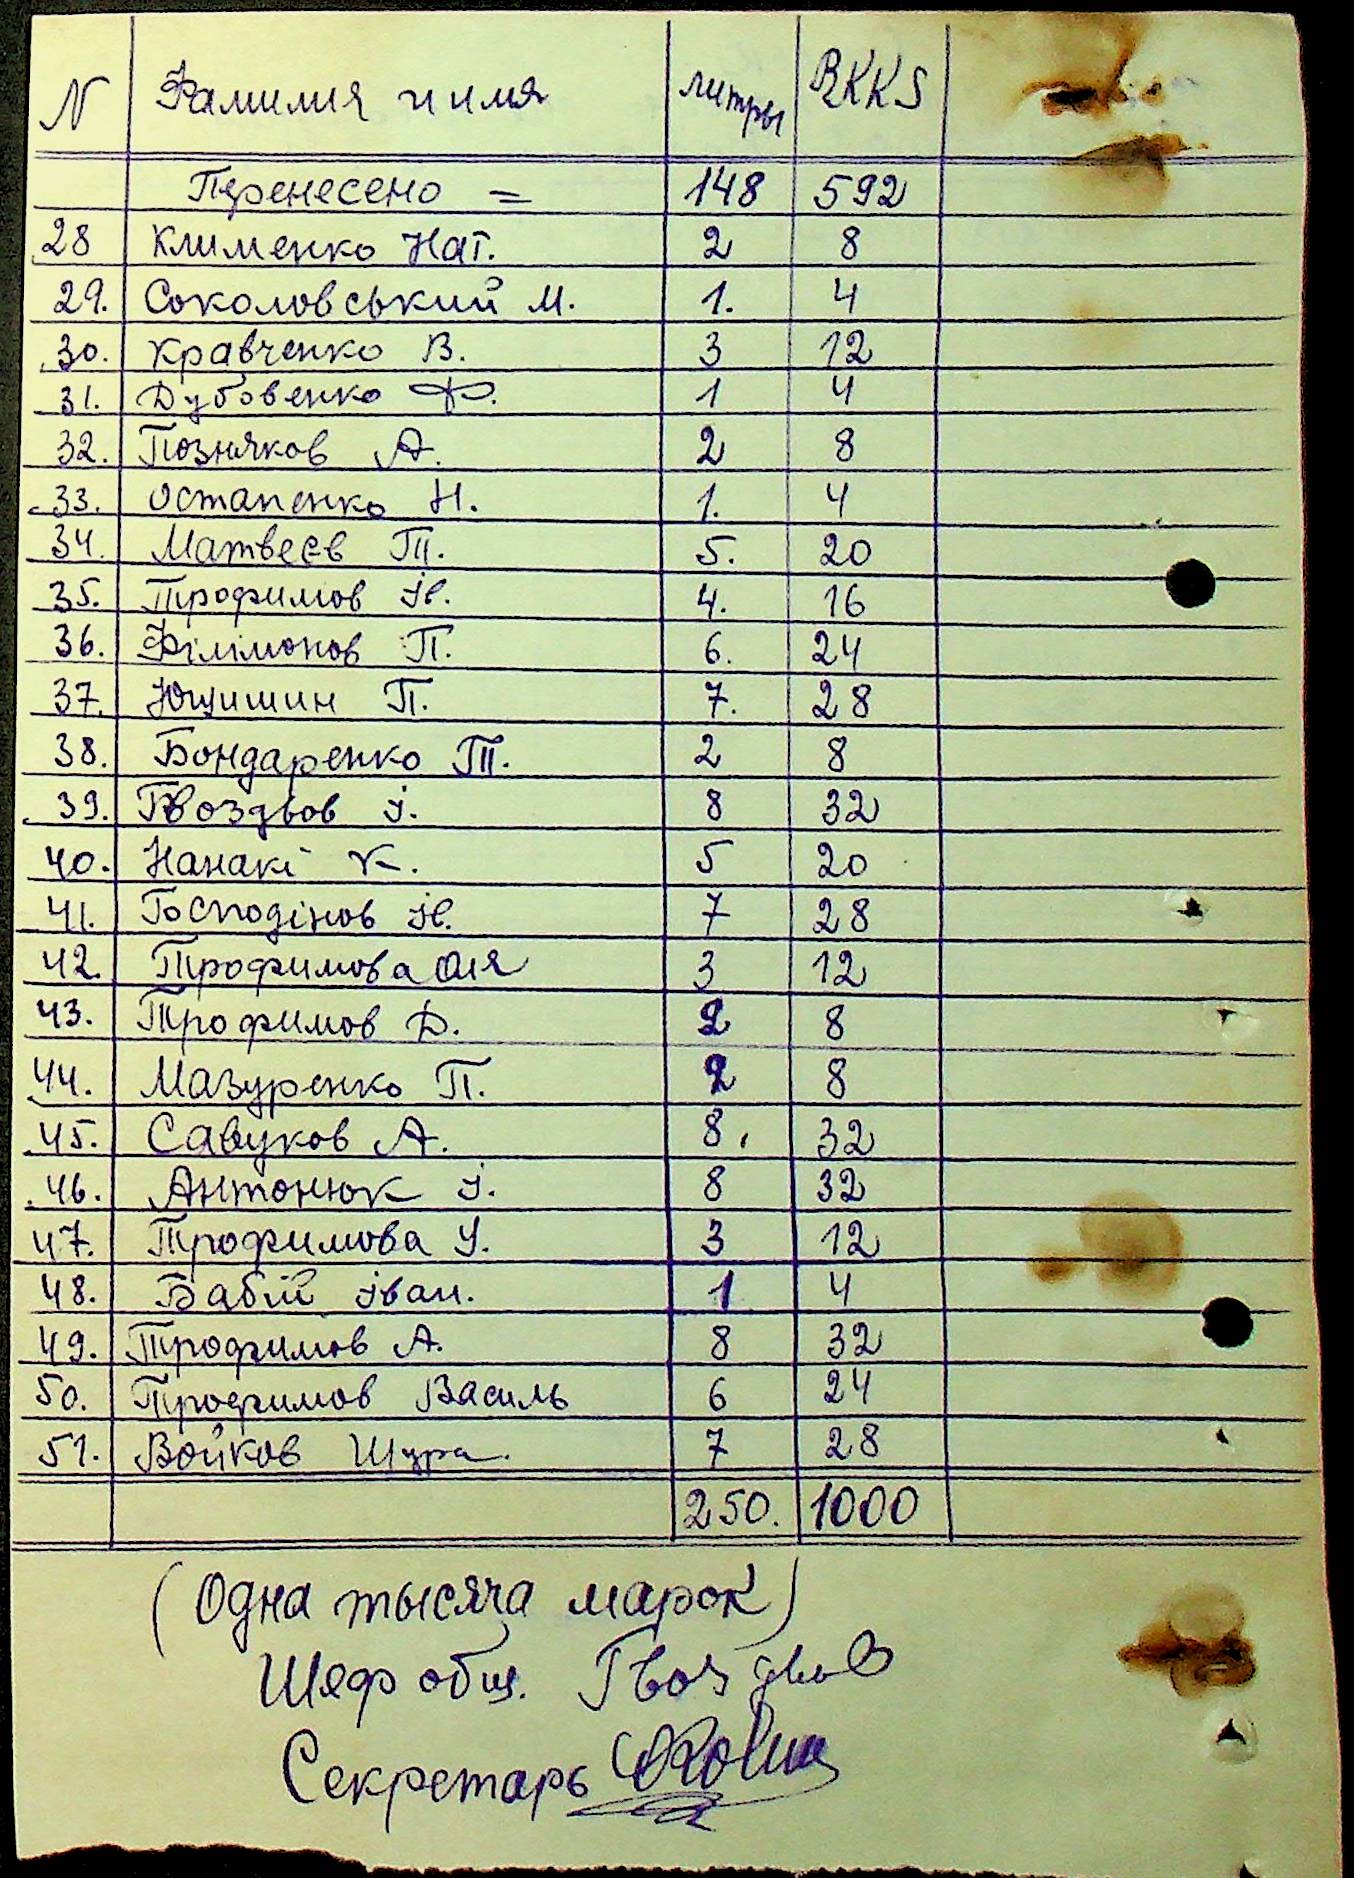 N Фамилия и имя литры RKKS
Перенесено = 148 592
28 Клименко Нат. 2 8
29. Соколовський М. 1. 4
30. Кравченко В. 3 12
31. Дубовенко Ф. 1 4
32. Позняков А. 2 8
33. Остапенко Н. 1. 4
34. Матвеєв Т. 5. 20
35. Трофимов Ів. 4. 16
36. Філімонов П. 6. 24
37. Ющишин П. 7. 28
38. Бондаренко Т. 2 8
39. Гвоздьов І. 8 32
40. Нанакі К. 5 20
41. Господінов Ів. 7 28
42. Трофимова Оля 3 12
43. Трофимов Д. 2 8
44. Мазуренко П. 2 8
45. Савуков А. 8. 32
46. Антонюк І. 8 32
47. Трофимова У. 3 12
48. Бабій Іван. 1 4
49. Трофимов А. 8 32
50. Трофимов Василь 6 24
51. Войков Шура. 7 28
250. 1000
(Одна тысяча марок)
Шеф общ. Гвоздьов
Секретарь